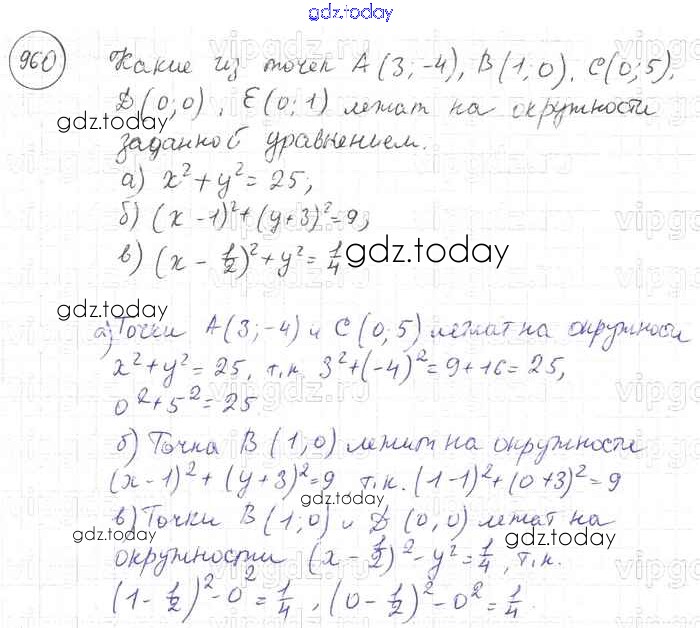 gdz.today
960 Какие из точек A(3;-4), B(1;0), C(0;5),
D(0;0), E(0;1) лежат на окружности
gdz.today
заданной уравнением.
а) x²+y²=25;
б) (x-1)²+(y+3)²=9;
в) (x-1/2)²+y²=1/4
gdz.today
gdz.today
а) Точки A(3;-4) и C(0;5) лежат на окружности
x²+y²=25, т.к 3²+(-4)²=9+16=25,
0²+5²=25
gdz.today
б) Точка B(1;0) лежит на окружности
(x-1)²+(y+3)²=9 т.к. (1-1)²+(0+3)²=9
gdz.today
в) Точки B(1;0) и D(0,0) лежат на
gdz.today
gdz.today
окружности (x-1/2)²-y²=1/4, т.к.
(1-1/2)²-0²=1/4, (0-1/2)²-0²=1/4.